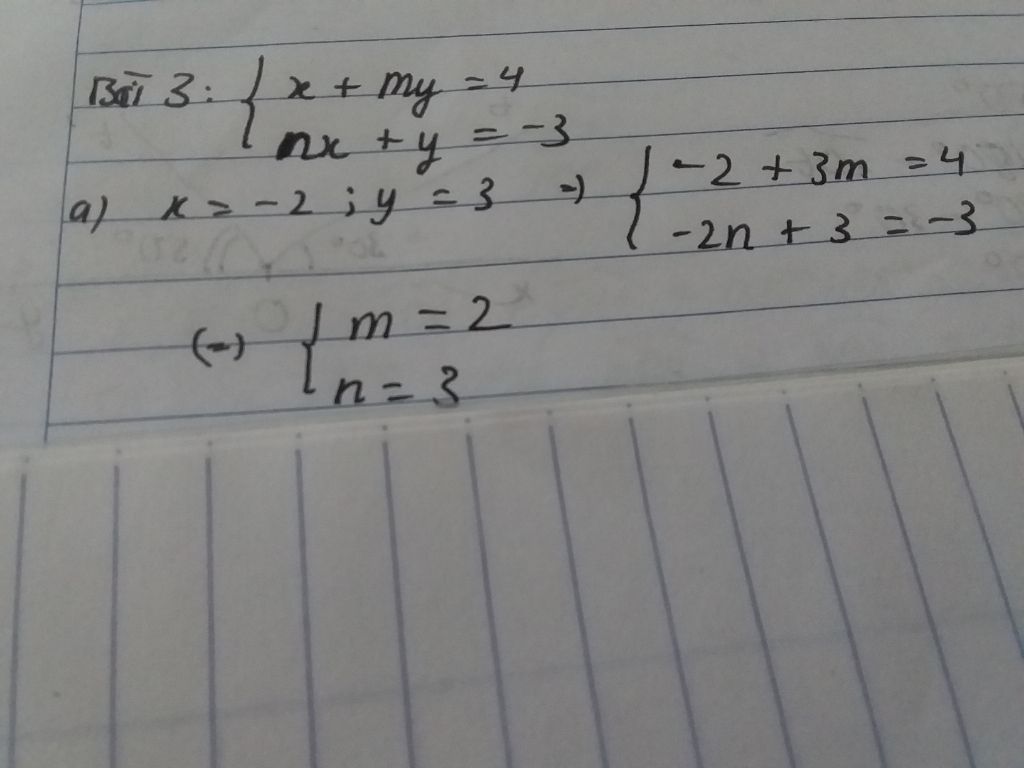 Bài 3: { x + my = 4
nx + y = -3
a) x = -2 ; y = 3 => { -2 + 3m = 4
-2n + 3 = -3
(=) { m = 2
n = 3